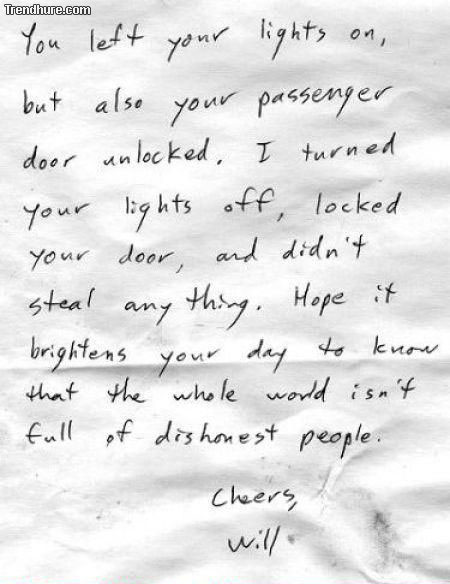 Trendhure.com
You left your lights on,
but also your passenger
door unlocked. I turned
your lights off, locked
your door, and didn't
steal anything. Hope it
brightens your day to know
that the whole world isn't
full of dishonest people.
Cheers,
Will